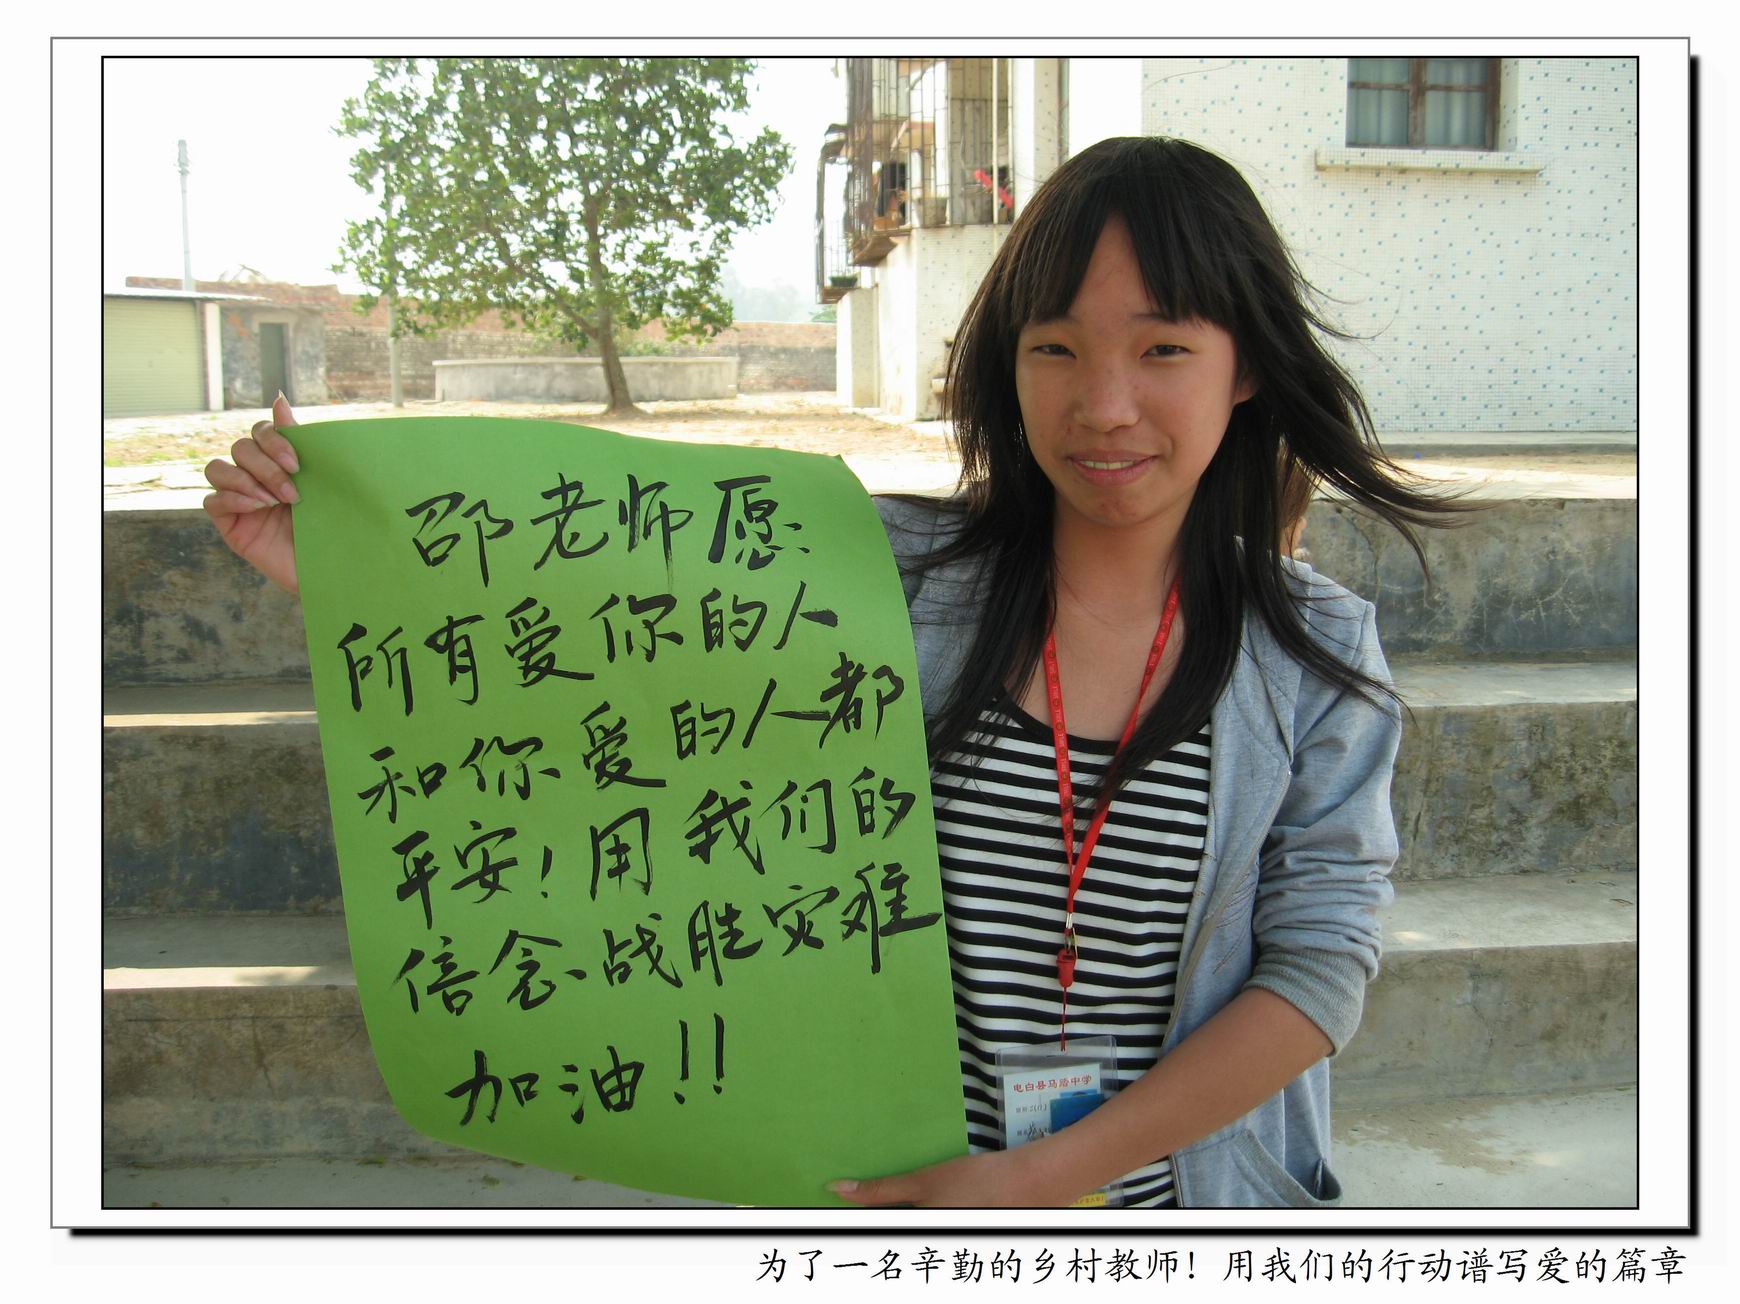 邵老师愿
所有爱你的人
和你爱的人都
平安！用我们的
信念战胜灾难
加油！！
电白县马踏中学
为了一名辛勤的乡村教师！用我们的行动谱写爱的篇章